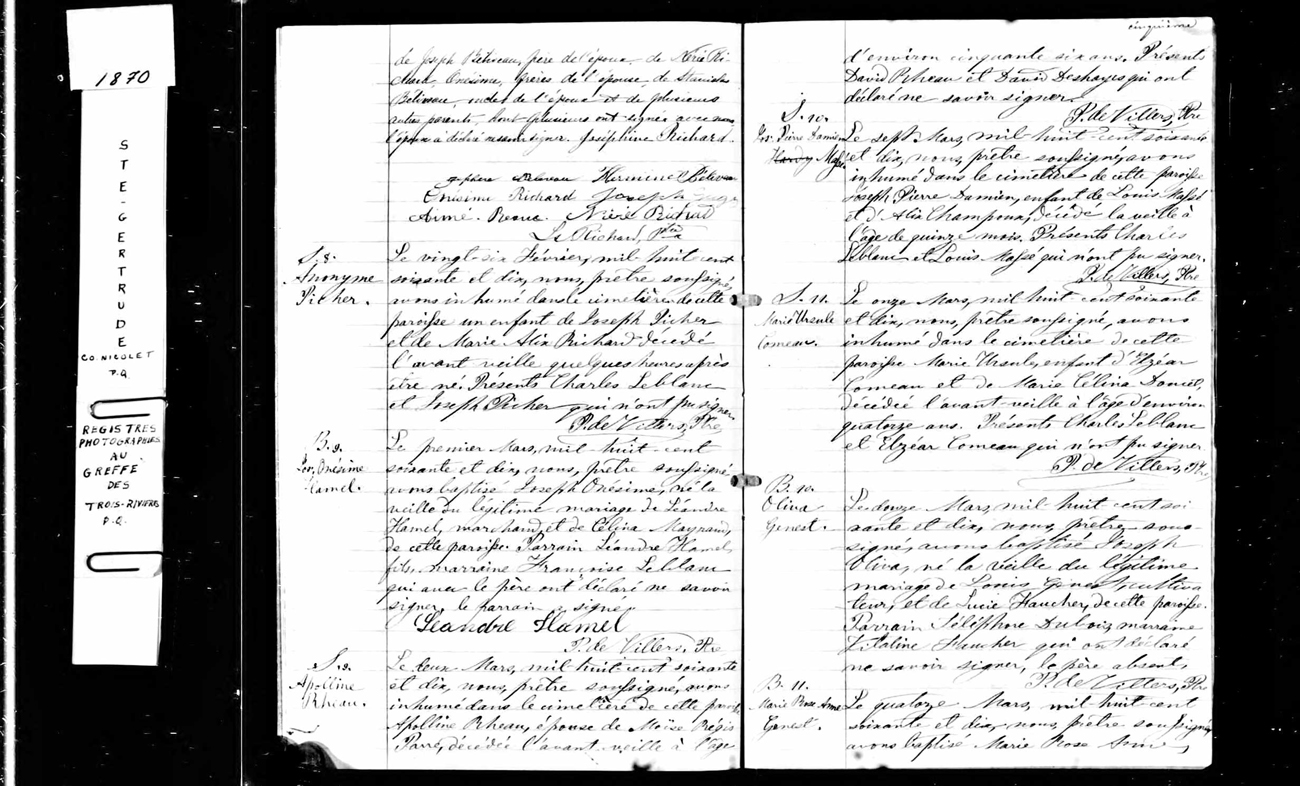 1870
STE-GERTRUDE
CO. NICOLET
P.Q.
REGISTRES
PHOTOGRAPHIÉS
AU
GREFFE
DES
TROIS-RIVIÈRES
P.Q.
de Joseph Béliveau, père de l'époux, de
Onésime, frères de l'épouse, de Stanislas
Béliveau, oncle de l'époux et de plusieurs
autres parents, dont plusieurs ont signés avec nous
l'époux a déclaré ne savoir signer. Joséphine Richard
Herminie Béliveau
Onésime Richard Joseph
Aimé Richard
Richard, Ptre
S. 8.
Anonyme
Picher.
Le vingt-six Février, mil huit cent
soixante et dix, nous, prêtre soussigné,
avons inhumé dans le cimetière de cette
paroisse un enfant de Joseph Picher
et de Marie Alix Richard décédé
l'avant veille quelques heures après
être né. Présents Charles Leblanc
et Joseph Picher qui n'ont pu signer
P. de Villers, Ptre
B. 9.
Jos. Onésime
Hamel.
Le premier Mars, mil huit-cent
soixante et dix, nous, prêtre soussigné
avons baptisé Joseph Onésime, né la
veille du légitime mariage de Léandre
Hamel, marchand, et de Célina Mayrand,
de cette paroisse. Parrain Léandre Hamel
fils, marraine Françoise Leblanc
qui avec le père ont déclaré ne savoir
signer, le parrain a signé
Léandre Hamel
P. de Villers, Ptre
S. 9.
Apolline
Rheau.
Le deux Mars, mil huit-cent soixante
et dix, nous, prêtre soussigné, avons
inhumé dans le cimetière de cette
Apolline Rheau, épouse de Moïse Régis
décédée l'avant-veille à l'âge
cinquième
d'environ cinquante six ans. Présents
David Rheau et David Deshayes qui ont
déclaré ne savoir signer.
P. de Villers, Ptre
S. 10.
Jos. Pierre Damien
Hardy Massé
Le sept Mars, mil huit-cent soixante
et dix, nous, prêtre soussigné, avons
inhumé dans le cimetière de cette paroisse
Joseph Pierre Damien, enfant de Louis Massé
et d'Alix Champoux, décédé la veille à
l'âge de quinze mois. Présents Charles
Leblanc et Louis Massé qui n'ont pu signer.
P. de Villers, Ptre
S. 11.
Marie Ursule
Comeau.
Le onze Mars, mil huit cent soixante
et dix, nous, prêtre soussigné, avons
inhumé dans le cimetière de cette
paroisse Marie Ursule, enfant d'Elzéar
Comeau et de Marie Célina
décédée l'avant-veille à l'âge d'environ
quatorze ans. Présents Charles Leblanc
et Elzéar Comeau qui n'ont pu signer
P. de Villers, Ptre
B. 10.
Oliva
Genest.
Le douze Mars, mil huit cent soi-
xante et dix, nous, prêtre sous-
signé, avons baptisé Joseph
Oliva, né la veille du légitime
mariage de Louis Genest, cultiva-
teur, et de Lucie Faucher, de cette paroisse.
Parrain Téléphore Dubois, marraine
Faucher qui ont déclaré
ne savoir signer, le père absent,
P. de Villers, Ptre
B. 11.
Marie Rose Anne
Genest.
Le quatorze Mars, mil huit cent
soixante et dix, nous, prêtre soussigné,
avons baptisé Marie Rose Ann